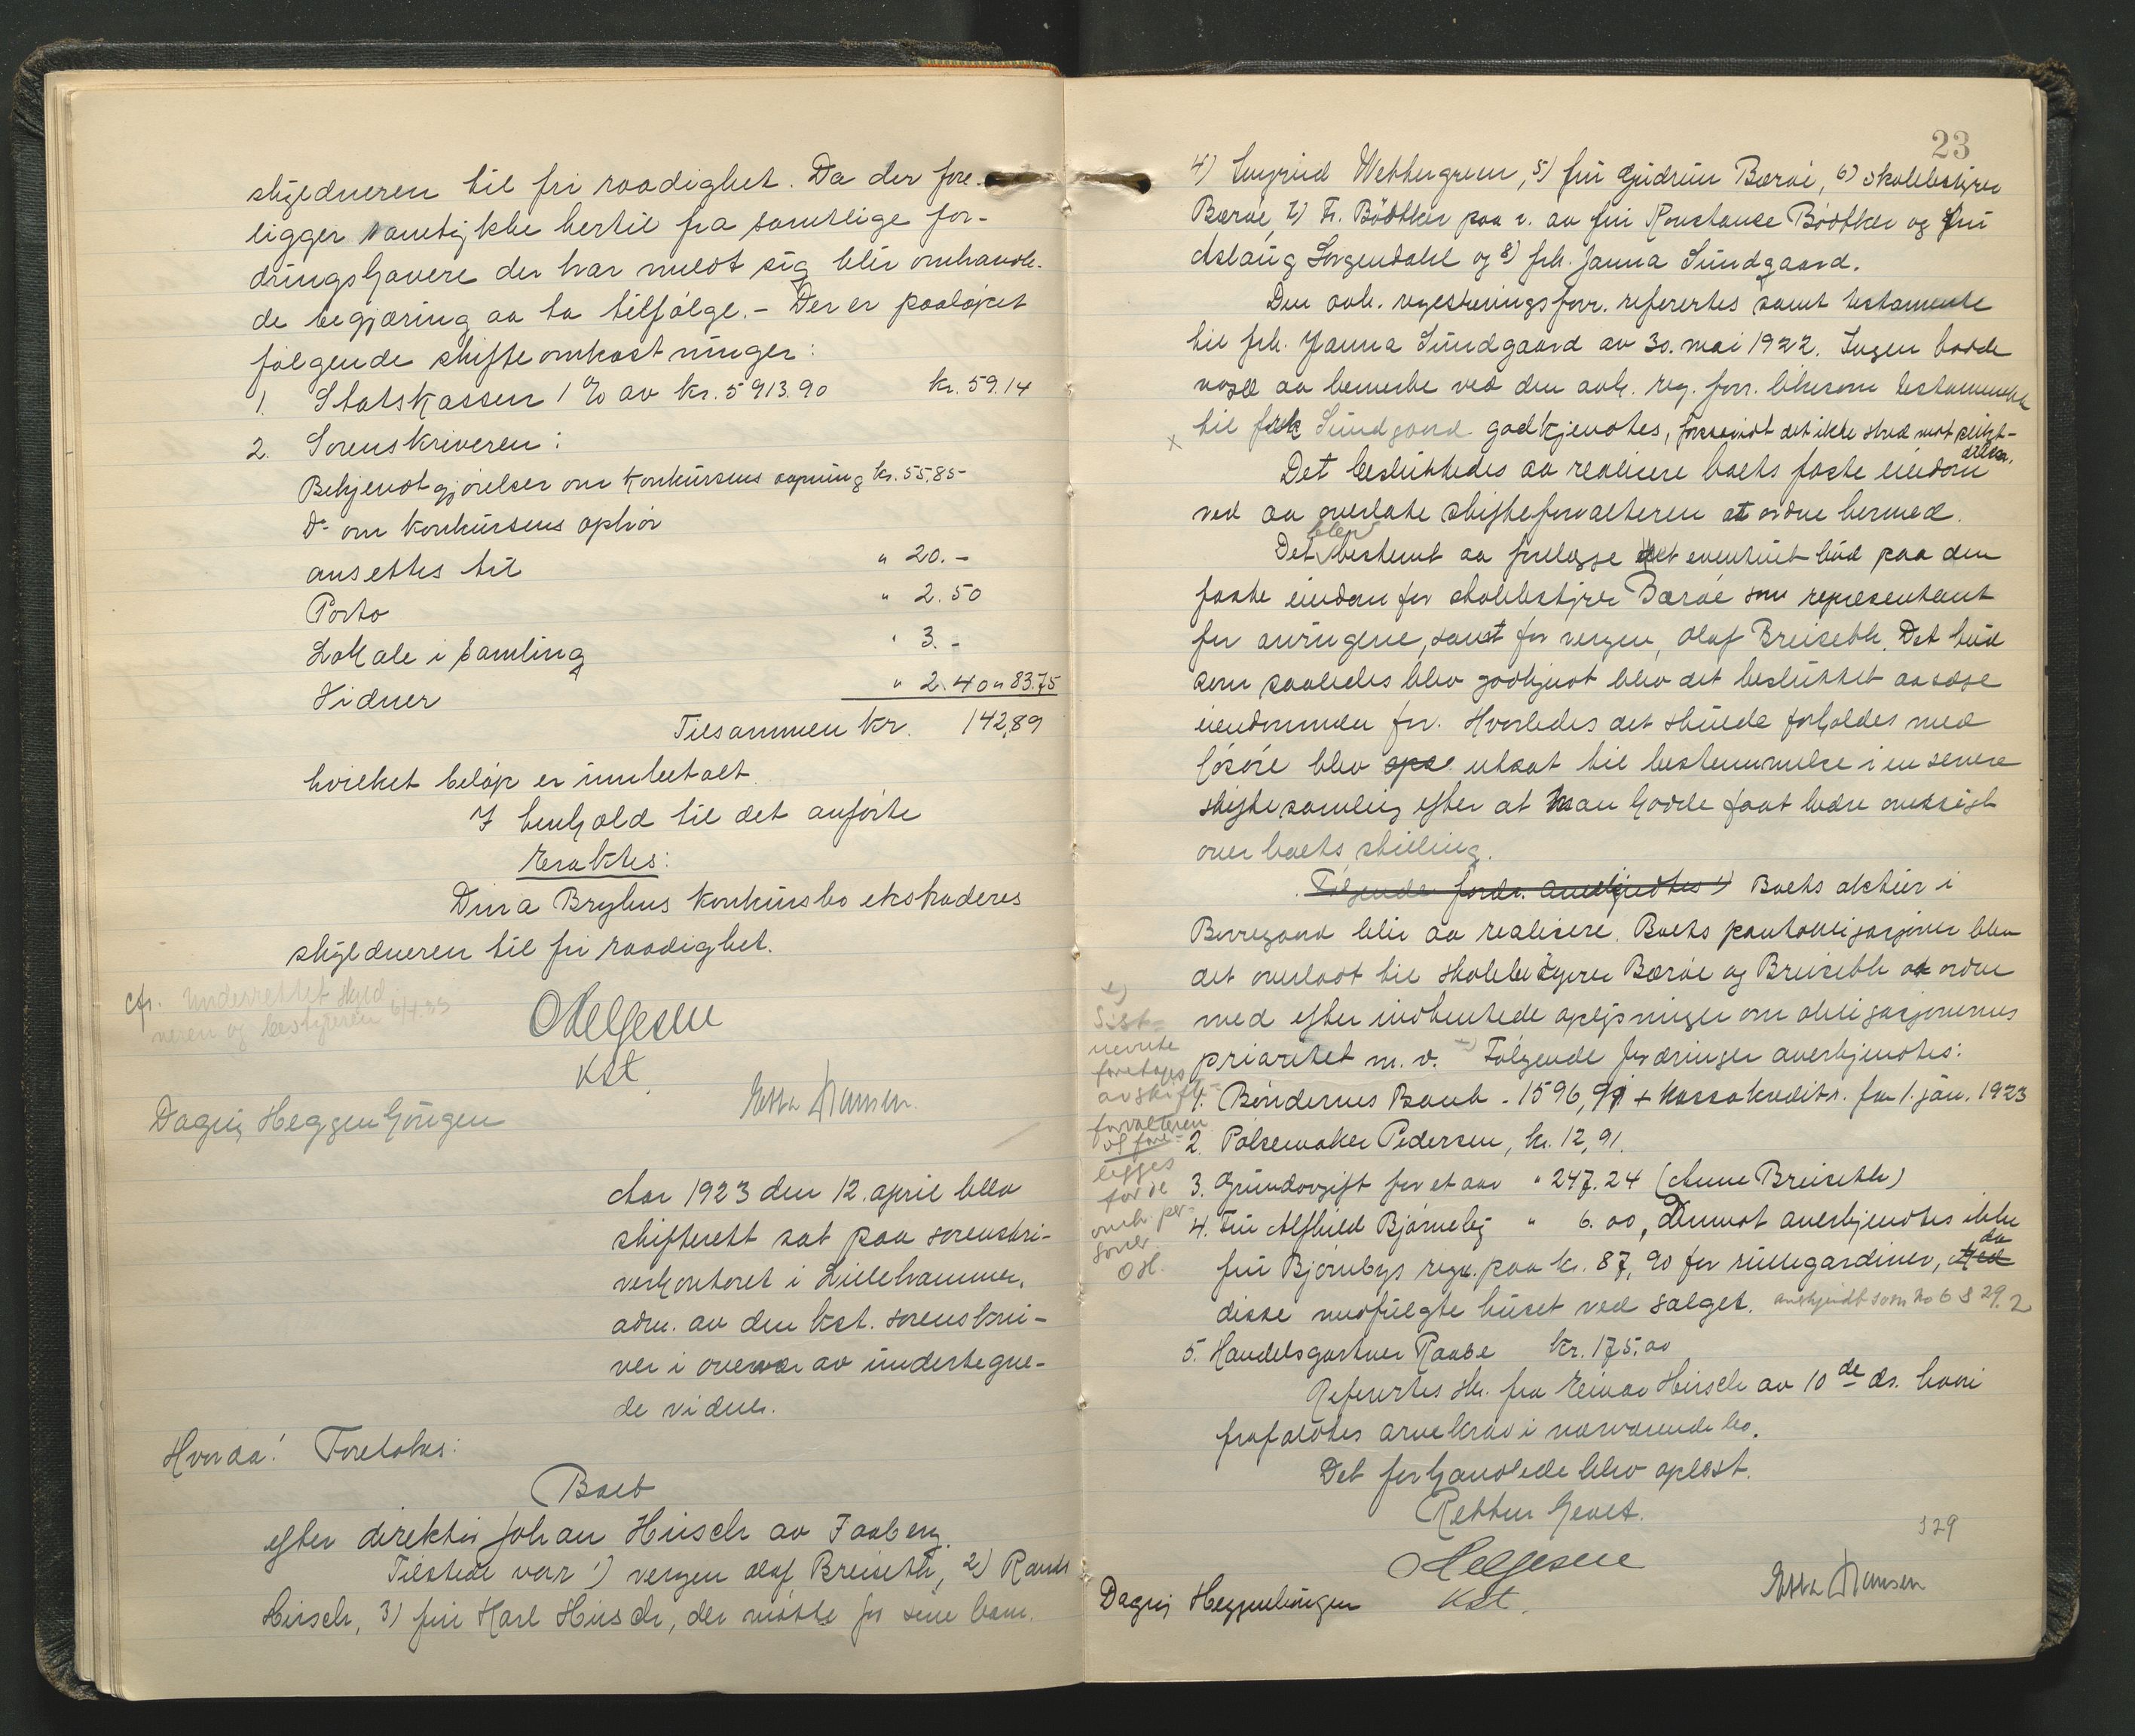 skyldneren til fri raadighet. Da der fore-
ligger samtykke hertil fra samtlige for-
dringshavere der har meldt sig blir omhandle-
de begjæring aa ta tilfølge. - Der er paaløpet
følgende skifteomkostninger:
1. Statskassen 1% av kr. 5913.90 kr. 59.14
2. Sorenskriveren:
Bekjendtgjørelser om konkursens aapning kr. 55.85
Do om konkursens ophør
ansettes til " 20.-
Porto " 2.50
Lokale i samling " 3.-
Vidner " 2.40 " 83.75
Tilsammen kr. 142,89
hvilket beløp er innbetalt.
I henhold til det anførte
eraktes:
Dina Bryhns konkursbo ekstraderes
skyldneren til fri raadighet.
cfr. Underrettet skyld-
neren og bestyreren 6/4.23
OHelgesen
Kst.
Dagny Heggenhougen
Hansen.
Aar 1923 den 12. april blev
skifterett sat paa sorenskri-
verkontoret i Lillehammer,
adm. av den kst. sorenskri-
ver i overvær av undertegne-
de vidner.
Hvorda! Foretokes:
Boet
efter direktør Johan Hirsch av Faaberg.
Tilstede var 1) vergen Olaf Breiseth, 2) Randi
Hirsch, 3) fru Karl Hirsch, der møtte for sine barn.
23
4) Ingrid Wettergreen, 5) fru Gudrun Barøe, 6) skolebestyrer
Barøe, 7) Fr. Bödtker paa v. av fru Konstanse Bödtker og fru
Aslaug Sorgendahl og 8) frk. Janna Sundgaard.
Den avh. registreringsforr. referertes samt testamente
til frk. Janna Sundgaard av 30. mai 1922. Ingen hadde
noget aa bemerke ved den avh. reg. forr. likesom testamentet
x til frk Sundgaard godkjendtes, forsaavidt det ikke stred mot pligt-
delen.
Det besluttedes aa realisere boets faste eiendom
ved aa overlate skifteforvalteren at ordne hermed.
Det blev bestemt aa forelægge det eventuelt bud paa den
faste eiendom for skolebestyrer Barøe som representant
for arvingene, samt for vergen, Olaf Breiseth. Det bud
som saaledes blev godkjent blev det besluttet aa sælge
eiendommen for. Hvorledes det skulde forholdes med
løsøre blev utsat til bestemmelse i en senere
skiftesamling efter at man hadde faat bedre oversigt
over boets stilling.
Følgende fordr. anerkjendtes 1) Boets aktier i
Borregaard blir aa realisere. Boets pantobligasjoner blev
det overlatt til skolebestyrer Barøe og Breiseth at ordne
med efter indhentede oplysninger om obligasjonernes
prioritet m. v. Følgende fordringer anerkjendtes:
Sist-
nevnte
foretages
av skifte-
forvalteren
og fore-
legges
for de
omh. per-
soner
OH.
1. Bøndernes Bank - 1596,91 + Kassakreditr. fra 1. jan. 1923
2. Pølsemaker Pedersen, kr. 12,91.
3. Grundavgift for et aar " 247.24 (Anne Breiseth)
4. Fru Alfhild Bjørneby " 6.00, Derimot anerkjendtes ikke
fru Bjørnbys regn. paa kr. 87,90 for rullegardiner, da
disse medfulgte huset ved salget. anerkjendt som no 6 S 29.2
5. Handelsgartner Raabe kr. 175.00
Refertes skr. fra Einar Hirsch av 10de ds. hvori
frafaldtes arvekrav i nærværende bo.
Det forhandlede blev oplæst.
Retten hevet.
329
OHelgesen
Kst.
Dagny Heggenhougen
Hansen